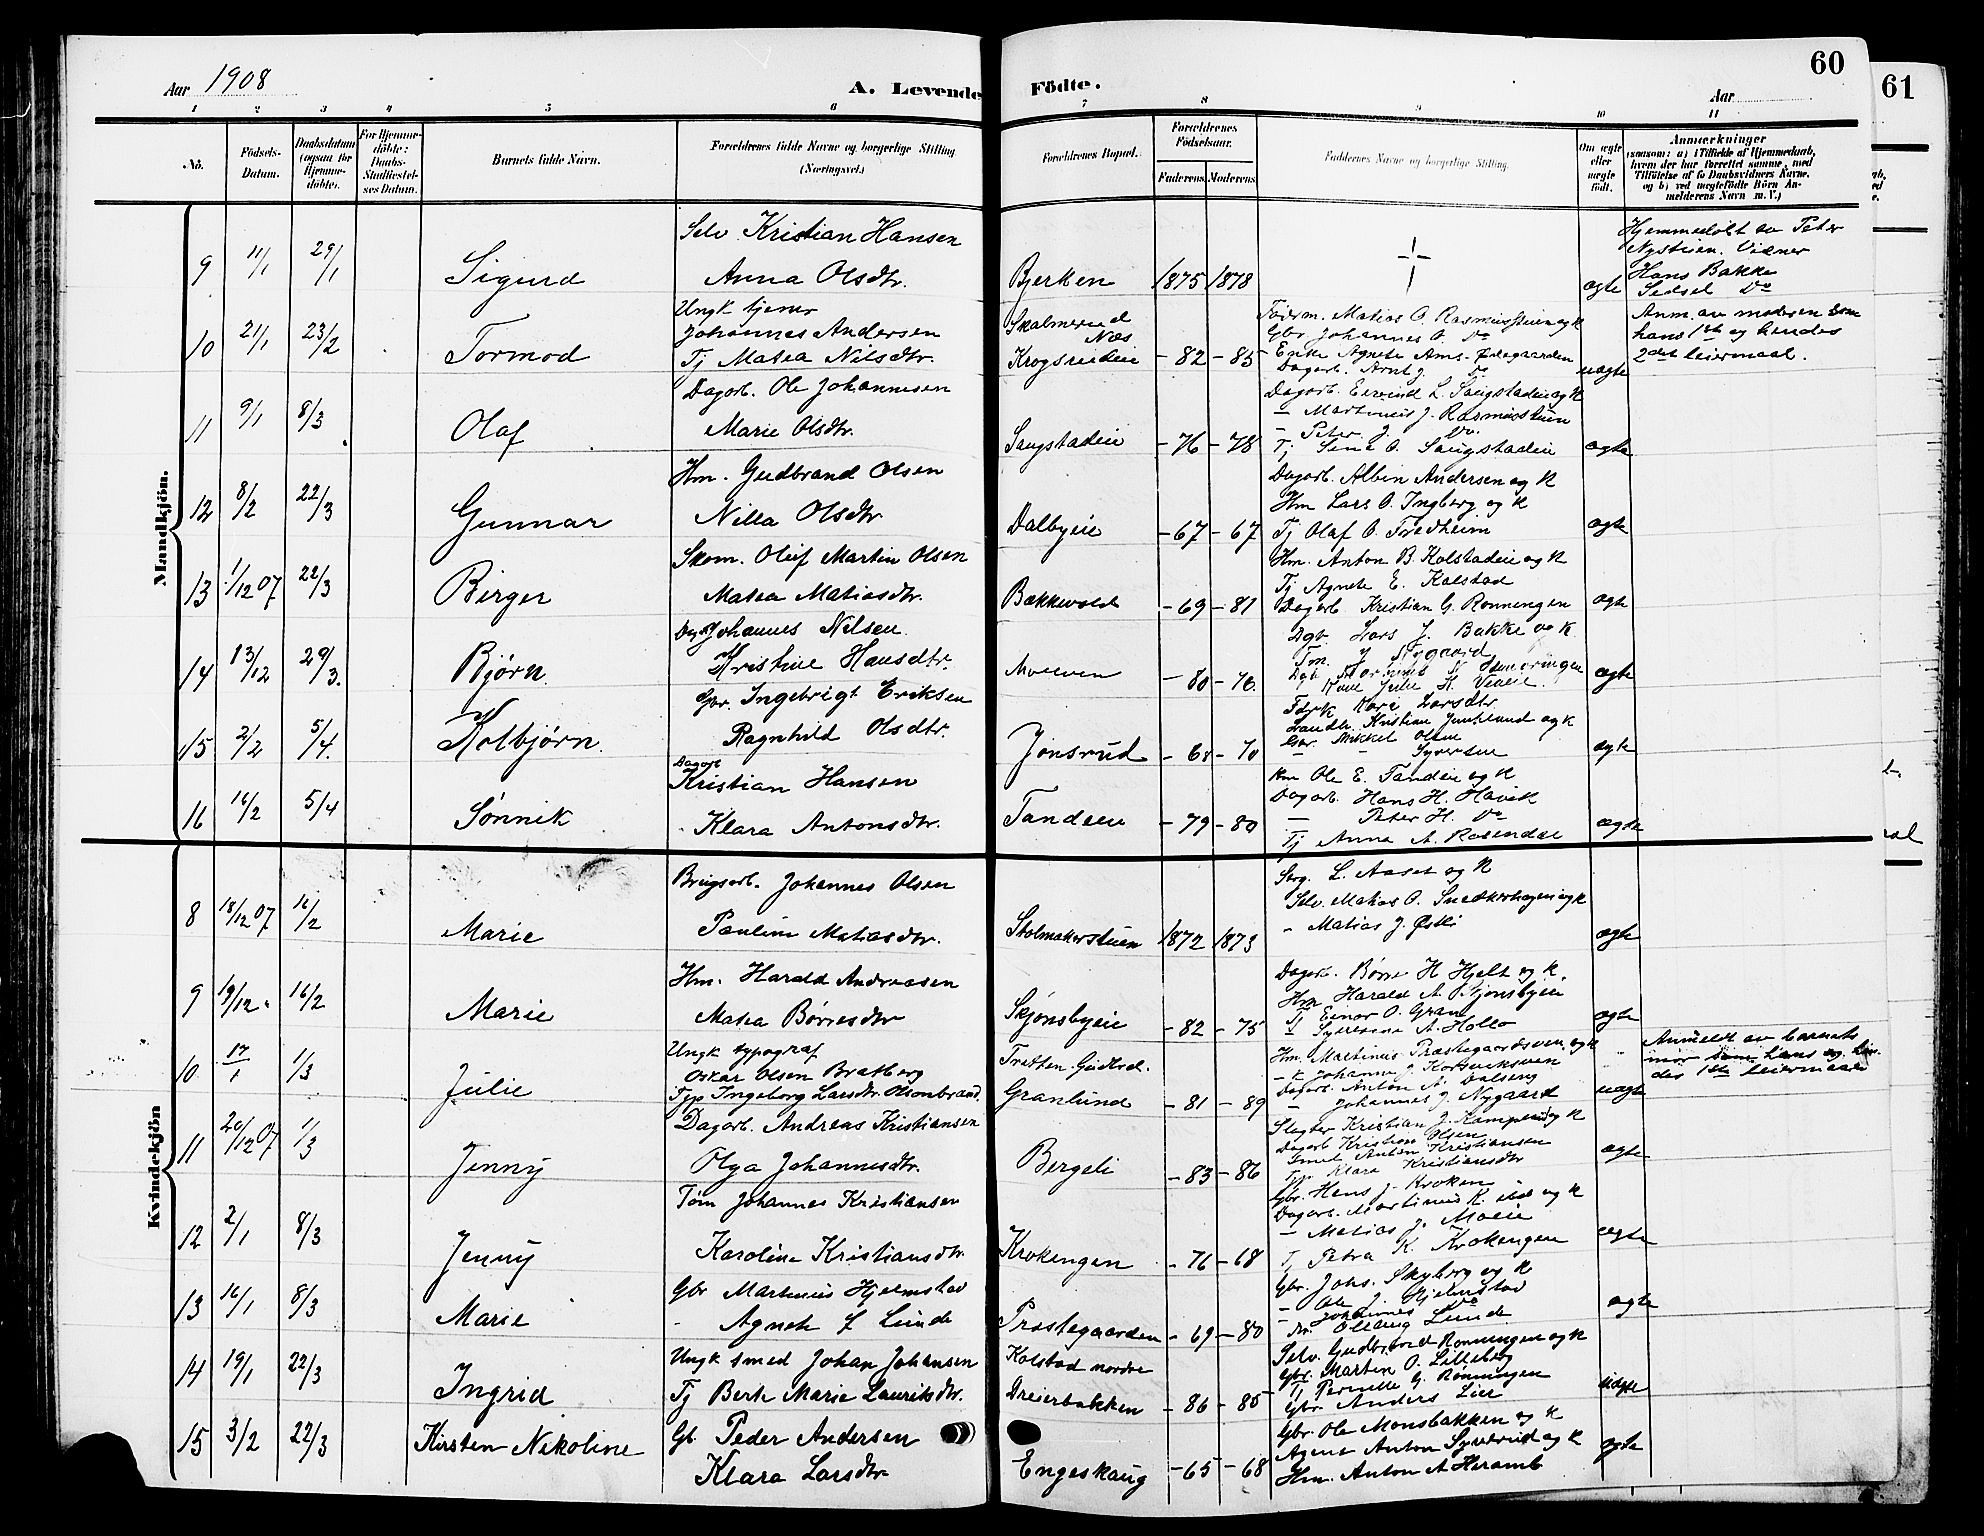 Aar 1908
A. Levende Födte.
60
61
Aar
1 2 3 4 5 6 7 8 9 10 11
No.
Födsels-Datum.
Daabsdatum (ogsaa for Hjemme-döbte).
For Hjemme-döbte: Daabs-Stadfæstel-ses Datum.
Barnets fulde Navn.
Forældrenes fulde Navne og borgerlige Stilling (Næringsvei.)
Forældrenes Bopæl.
Forældrenes Födselsaar.
Faderens. Moderens.
Faddernes Navne og borgerlige Stilling.
Om ægte eller uægte födt.
Anmærkninger
(saasom: a) i Tilfælde af Hjemmedaab, hvem der har forrettet samme, med Tilföielse af to Daabsvidners Navne, og b) ved uægtefödte Börn An-melderens Navn m. V.)
Mandkjön.
9 11/1 29/1 Sigurd
Selv. Kristian Hansen
Anna Olsdtr.
Bjerken 1875 1878 ægte
Hjemmedøbt av Peter
Nystuen. Vidner
Hans Bakke
Sedsel Do
10 21/1 23/2 Tormod
Ungk tjener
Johannes Andersen
Tj Matea Nilsdtr.
Skalmerud
Næs
Krogsveeneie - 82 - 85 uægte
Gbr Johannes O. Do
Enke Agnete Ams. Ødegaarden
Dagarb. Arnt J. Do
Anm. av moderen som
hans 1ste og hendes
2det leiermaal.
11 9/1 8/3 Olaf
Dagarb. Ole Johannesen
Marie Olsdtr.
Saugstadeie - 76 - 78 ægte
Dagarb. Eivind L. Saugstadeie og K
- Martinus J. Rasmusstuen
- Peter J. Do.
Tj Sina O. Saugstadeie
12 8/2 22/3 Gunnar
Hm. Gudbrand Olsen
Nilla Olsdtr.
Dalbyeie - 67 - 67 ægte
Dagarb. Albin Andersen og K
Hm Lars O. Ingberg og K
Tj Olaf O. Fredheim
13 1/12 07 22/3 Birger
Skom. Oluf Martin Olsen
Matea Matiasdtr.
Bakkevold - 69 - 81 ægte
Hm. Anton B. Kolstadeie og K
Tj Agnete E. Kolstad
Dagarb. Kristian G. Rønningen
14 13/12 29/3. Bjørn
Johannes Nilsen
Kristine Hansdtr.
Moeven - 80 - 76. ægte
Dgb Lars J. Bakke og K.
Tm. J Nygaard
15 2/2 5/4. Kolbjørn
Gbr. Ingebrigt Eriksen
Ragnhild Olsdtr.
Jønsrud - 68 - 70 ægte
Kari Larsdtr
Gbr. Mikkel Olsen
- - Syversen
16 16/2 5/4 Sønnik
Dagarb
Kristian Hansen
Klara Antonsdtr.
Tandeeie - 79 - 80 ægte
Hm Ole E. Tandeie og K
Dagarb. Hans H. Høvik
- Peter H. Do
Tj Anna A. Rosendal
Kvindekjön
8 18/12 07 16/2 Marie
Brugsarb. Johannes Olsen
Pauline Matiasdtr.
Stolmakerstuen 1872 1873 ægte
L. Aaset og K
Selv. Matias O. Snedkerhagen og K
- Matias J. Østli
9 19/12 „ 16/2 Marie
Hm. Harald Andreasen
Matea Børresdtr
Skjønsbyeie - 82 - 75 ægte
Dagarb. Børre H Hjelt og K.
Hm Harald A. Skjønsbyeie
Tj Einar O. Gran
10 17/1 1/3 Julie
Ungk typograf
Oskar Olsen Bratberg
Fyp Ingeborg Larsdtr. Olsonbrand.
Tretten. Gudbrd.
Granlund - 81 - 89 uægte
Hm. Martinus Præstegaardsven. og K
Dagarb. Anton A. Dalseng
- Johannes J. Nygaard
Anmeldt av barnets
mor som hans og hen-
des 1ste leiermaal
11 20/12 07 1/3 Jenny
Dagarb. Andreas Kristiansen
Olga Johannesdtr.
Bergeli - 83 - 86 ægte
Slagter Kristian J. Kampen og K
Dagarb Kristian Olsen
Smed Anton Kristiansen
Klara Kristiansdtr
12 2/1 8/3 Jenny
Tøm Johannes Kristiansen
Karoline Kristiansdtr.
Krokengen - 76 - 68 ægte
Gbr. Hans J. Kroken
- Matias J. Moeie
Tj Petra K. Krokengen
13 16/1 8/3 Marie
Gbr Martinus Hjelmstad
- Agnete f Lunde
Præstegaarden - 69 - 80 ægte
Gbr. Johs. Skyberg og K
- Ole J. Hjelmstad
- Johannes Do
Olaug Lunde
14 19/1 22/3 Ingrid
Ungk smed Johan Johansen
Tj Berte Marie Lauritsdtr.
Kolstad nordre
Dreierbakken - 86 - 85 uægte
Selv. Gudbrand Rønningen og K
Gbr. Martin O. Lilleberg
Tj Pernille G. Rønningen
Gbr. Anders Lier
15 3/2 22/3 Kirsten Nikoline
Gb. Peder Andersen
Klara Larsdtr
Engeskaug - 65 - 68 ægte
Gbr. Ole Monsbakken og K
Agent Anton Syverud og K
Hm. Anton A Heramb